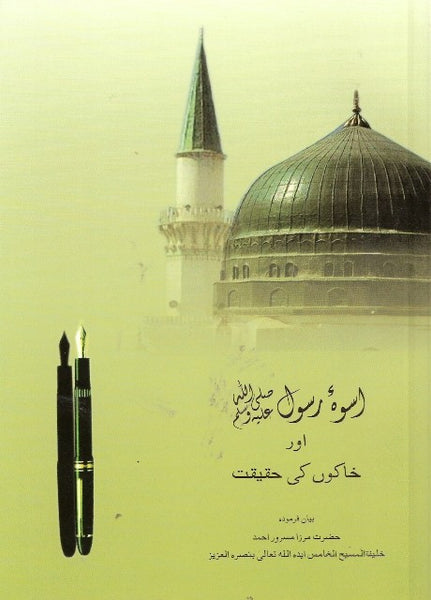 اسوۂ رسول صلی اللہ علیہ وسلم
اور
خاکوں کی حقیقت
بیان فرمودہ
حضرت مرزا مسرور احمد
خلیفۃ المسیح الخامس ایدہ اللہ تعالیٰ بنصرہ العزیز